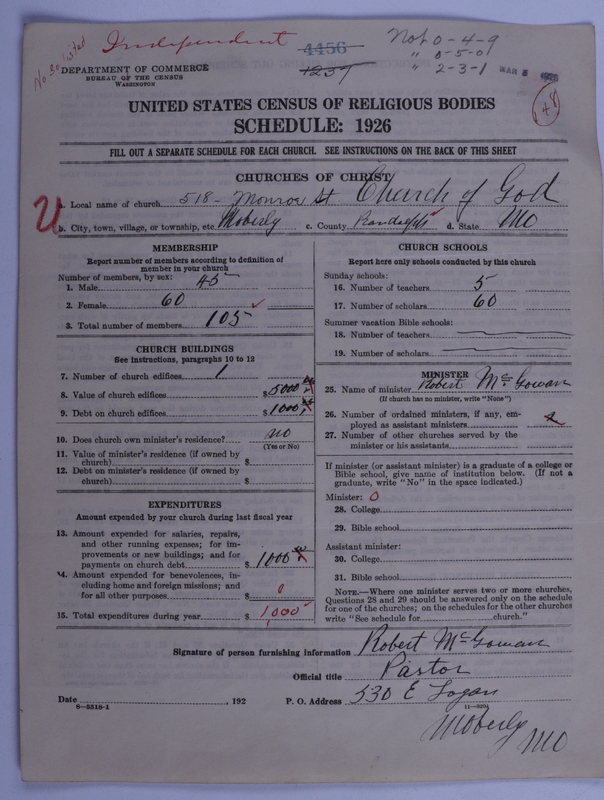 Independent
No So listed
4456
1237
Not 0-4-9
" 0-5-0
" 2-3-1
MAR 5 1926
DEPARTMENT OF COMMERCE
BUREAU OF THE CENSUS
WASHINGTON
UNITED STATES CENSUS OF RELIGIOUS BODIES
SCHEDULE: 1926
FILL OUT A SEPARATE SCHEDULE FOR EACH CHURCH. SEE INSTRUCTIONS ON THE BACK OF THIS SHEET
CHURCHES OF CHRIST
a. Local name of church 518- Monroe St Church of God
b. City, town, village, or township, etc. Moberly c. County Randolph d. State Mo
MEMBERSHIP
Report number of members according to definition of
member in your church
Number of members, by sex:
1. Male 45
2. Female 60
3. Total number of members 105
CHURCH BUILDINGS
See instructions, paragraphs 10 to 12
7. Number of church edifices 1
8. Value of church edifices $ 5000
9. Debt on church edifices $ 1000
10. Does church own minister's residence? no
(Yes or No)
11. Value of minister's residence (if owned by
church) $
12. Debt on minister's residence (if owned by
church) $
EXPENDITURES
Amount expended by your church during last fiscal year
13. Amount expended for salaries, repairs,
and other running expenses; for im-
provements or new buildings; and for
payments on church debt $ 1000
14. Amount expended for benevolences, in-
cluding home and foreign missions; and
for all other purposes $ 0
15. Total expenditures during year $ 1,000
CHURCH SCHOOLS
Report here only schools conducted by this church
Sunday schools:
16. Number of teachers 5
17. Number of scholars 60
Summer vacation Bible schools:
18. Number of teachers
19. Number of scholars
MINISTER
25. Name of minister Robert McGowan
(If church has no minister, write "None")
26. Number of ordained ministers, if any, em-
ployed as assistant ministers
27. Number of other churches served by the
minister or his assistants
If minister (or assistant minister) is a graduate of a college or
Bible school, give name of institution below. (If not a
graduate, write "No" in the space indicated.)
Minister: 0
28. College
29. Bible school
Assistant minister:
30. College
31. Bible school
NOTE.—Where one minister serves two or more churches,
Questions 28 and 29 should be answered only on the schedule
for one of the churches; on the schedules for the other churches
write "See schedule for church."
Signature of person furnishing information Robert McGowan
Official title Pastor
Date , 192 P. O. Address 530 E Logan
8—5518-1
Moberly Mo